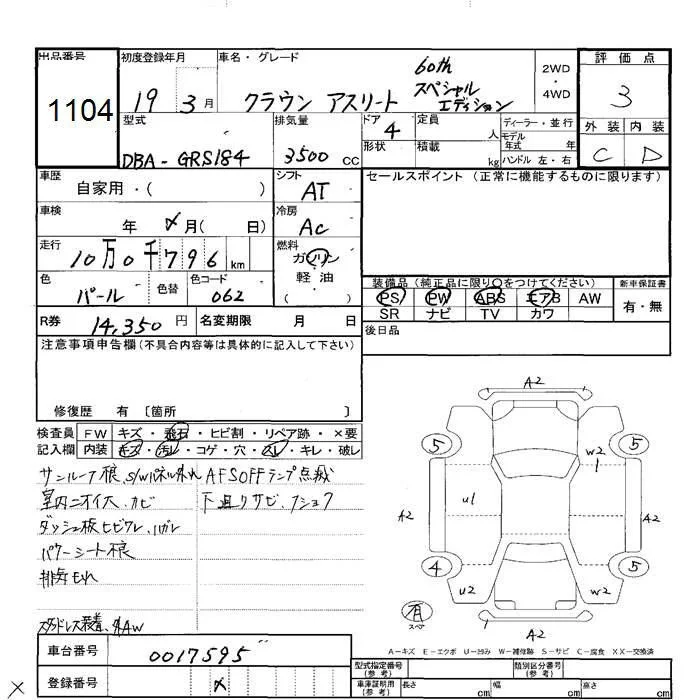 出品番号 初度登録年月 車名・グレード 評価点
1104 19 3月 クラウン アスリート 60th スペシャル エディション 2WD 4WD 3
型式 排気量 ドア 定員 人 ディーラー・並行 外装 内装
DBA-GRS184 3500 CC 4 形状 積載 kg モデル年式 年 ハンドル 左・右 C D
車歴 自家用・( ) シフト AT セールスポイント(正常に機能するものに限ります)
車検 年 〆月( 日) 冷房 AC
走行 10万0千796 km 燃料 ガソリン 軽油 ( )
色 パール 色替 色コード 062 装備品(純正品に限り○をつけてください) 新車保証書
PS PW ABS エアB AW 有・無
SR ナビ TV カワ
R券 14,350円 名変期限 月 日 後日品
注意事項申告欄(不具合内容等は具体的に記入して下さい)
修復歴 有 〔箇所 〕
検査員 FW キズ・飛石・ヒビ割・リペア跡・×要
記入欄 内装 キズ・汚レ・コゲ・穴・スレ・キレ・破レ
サンルーフ 浪、S/Wパネル外れ AFSOFFランプ点滅
室内ニオイ大、カビ 下廻リサビ、フショク
ダッシュ板ヒビワレ、ハガレ
パワーシート不良
排気もれ
スタッドレス装着、AW
A2
5 5
W2
U1
A2 A2
4 5
U2 W2
有 スペア
A2
A-キズ E-エクボ U-凹み W-補修跡 S-サビ C-腐食 XX-交換済
車台番号 0017595 型式指定番号(参考) 類別区分番号(参考)
登録番号 〆 車庫証明用(参考) 長さ cm 幅 cm 高さ cm